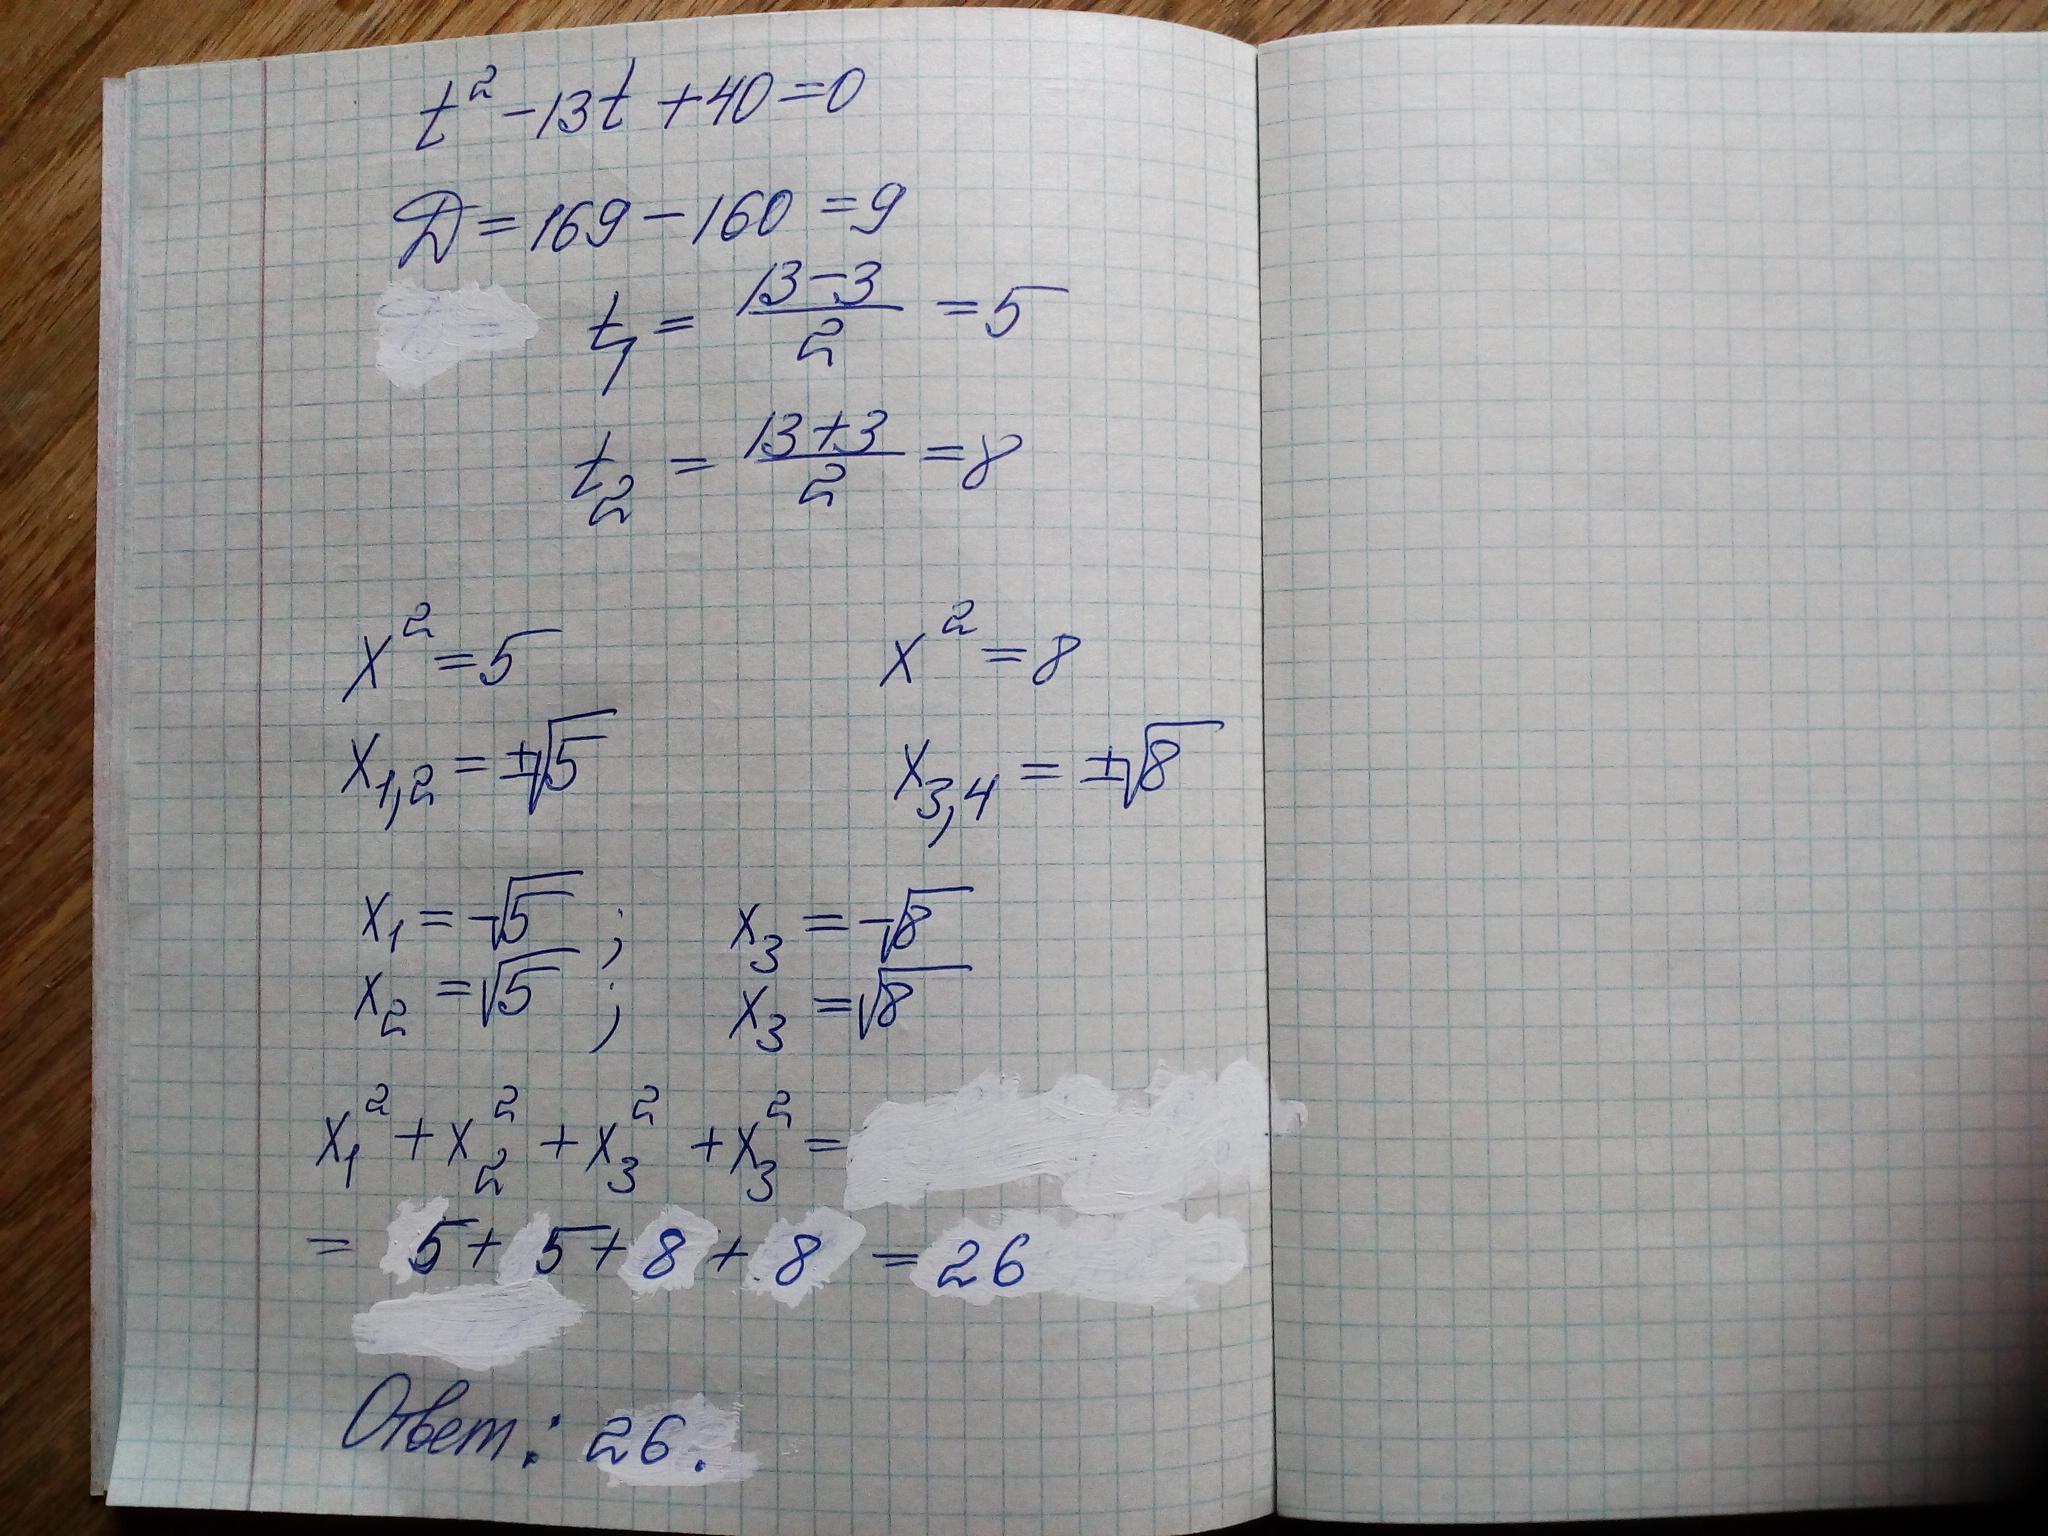 t² - 13t + 40 = 0
D = 169 - 160 = 9
t₁ = (13 - 3)/2 = 5
t₂ = (13 + 3)/2 = 8
x² = 5 x² = 8
x₁,₂ = ±√5 x₃,₄ = ±√8
x₁ = -√5 ; x₃ = -√8
x₂ = √5 ; x₃ = √8
x₁² + x₂² + x₃² + x₃² =
= 5 + 5 + 8 + 8 = 26
Ответ: 26.